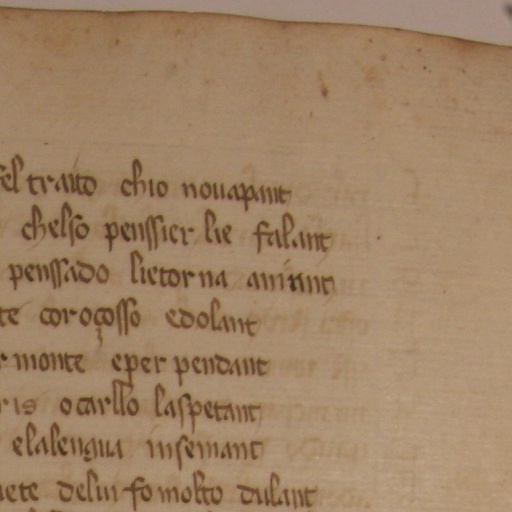 sel traito chio nouapant
chelso penssier lie falant
penssado lietorna anirant
te coroçosso edolant
r monte eper pendant
ris ocarllo laspetant
elalengua insemant
uete delui fo molto dulant